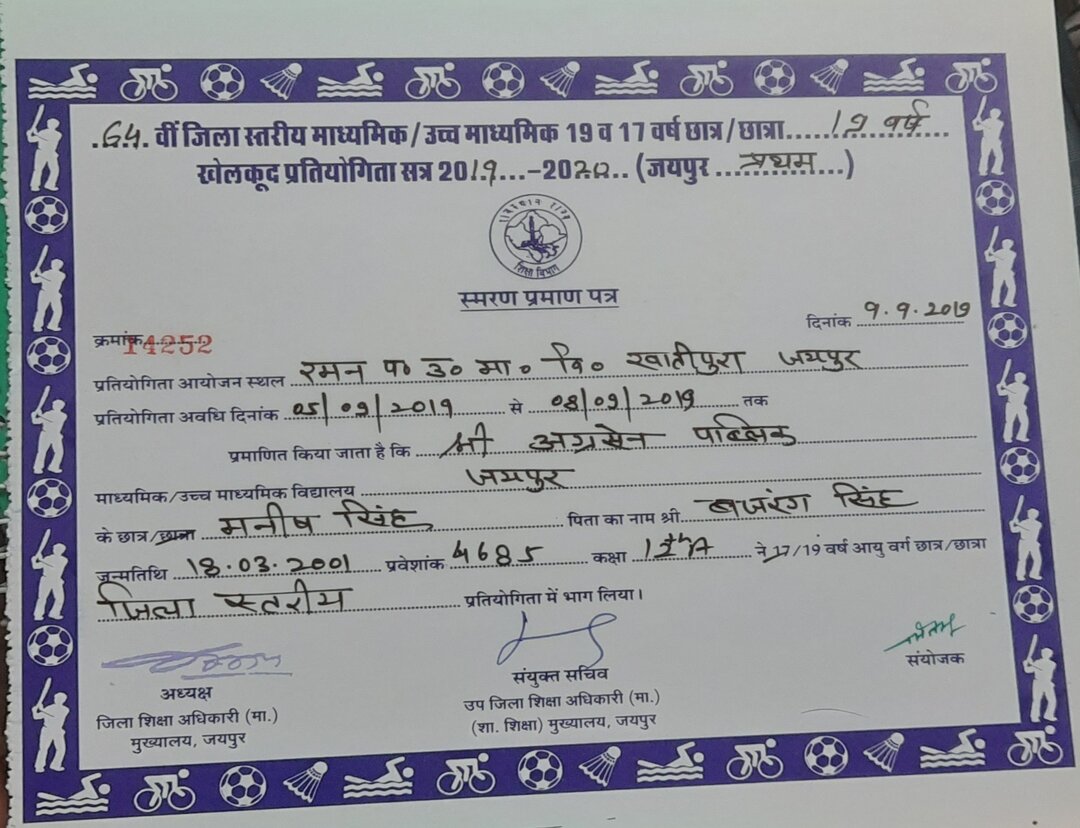 64. वीं जिला स्तरीय माध्यमिक/उच्च माध्यमिक 19 व 17 वर्ष छात्र/छात्रा.....19 वर्ष
खेलकूद प्रतियोगिता सत्र 2019...-2020.. (जयपुर ...प्रथम...)
शिक्षा विभाग
स्मरण प्रमाण पत्र
दिनांक 9.9.2019
क्रमांक 14252
प्रतियोगिता आयोजन स्थल रमन प० उ० मा० वि० खातीपुरा जयपुर
प्रतियोगिता अवधि दिनांक 05/09/2019 से 08/09/2019 तक
प्रमाणित किया जाता है कि श्री अग्रसेन पब्लिक
माध्यमिक/उच्च माध्यमिक विद्यालय जयपुर
के छात्र/छात्रा मनीष सिंह पिता का नाम श्री. बजरंग सिंह
जन्मतिथि 18.03.2001 प्रवेशांक 4685 कक्षा 12th A ने 17/19 वर्ष आयु वर्ग छात्र/छात्रा
जिला स्तरीय प्रतियोगिता में भाग लिया।
अध्यक्ष
जिला शिक्षा अधिकारी (मा.)
मुख्यालय, जयपुर
संयुक्त सचिव
उप जिला शिक्षा अधिकारी (मा.)
(शा. शिक्षा) मुख्यालय, जयपुर
संयोजक